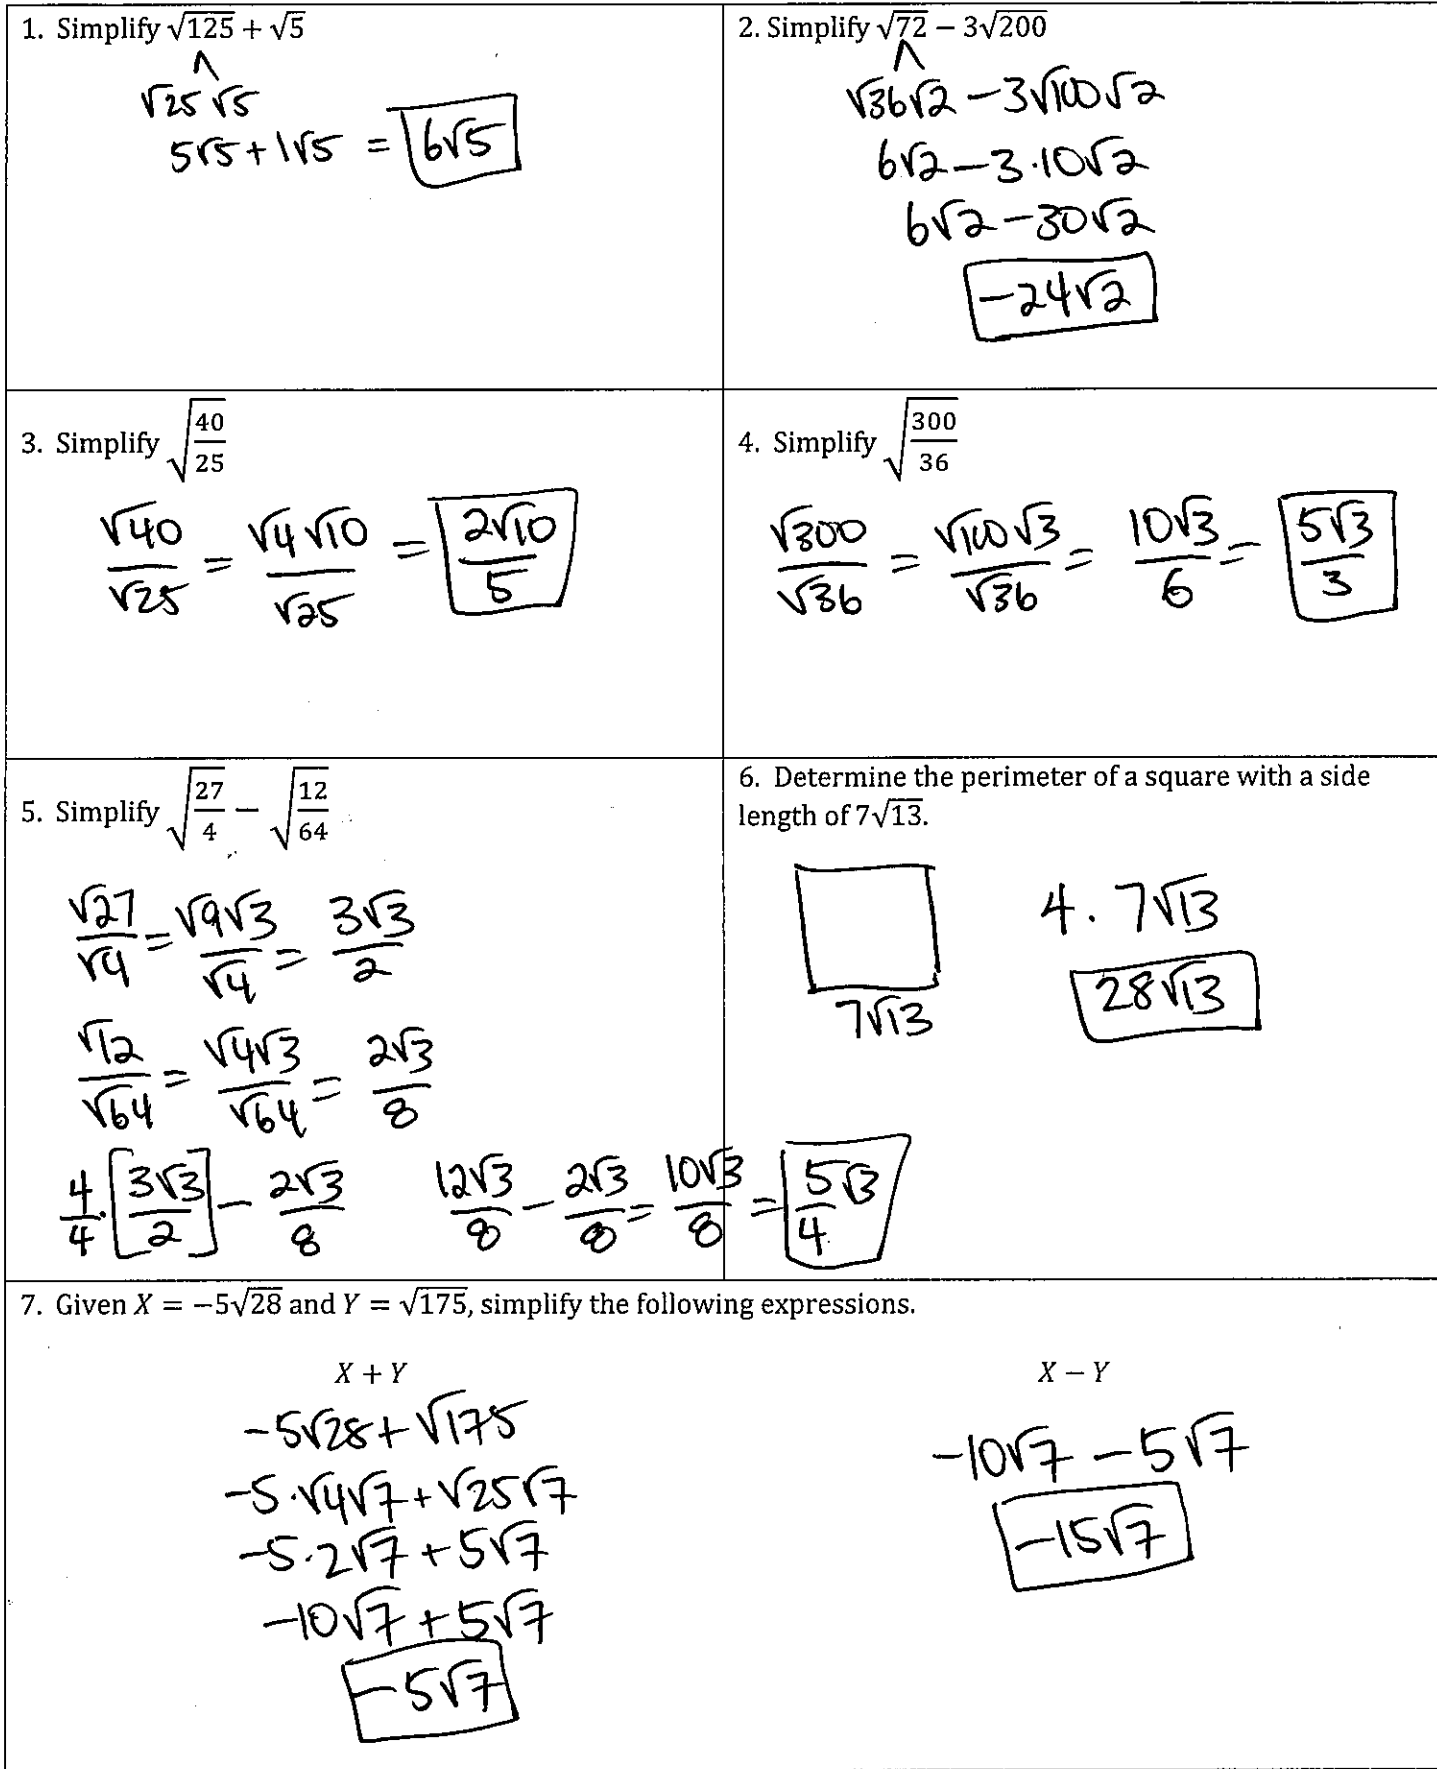 1. Simplify √125 + √5
√25 √5
5√5 + 1√5 = 6√5
2. Simplify √72 − 3√200
√36√2 − 3√100√2
6√2 − 3·10√2
6√2 − 30√2
−24√2
3. Simplify √(40/25)
√40/√25 = √4√10/√25 = 2√10/5
4. Simplify √(300/36)
√300/√36 = √100√3/√36 = 10√3/6 = 5√3/3
5. Simplify √(27/4) − √(12/64)
√27/√4 = √9√3/√4 = 3√3/2
√12/√64 = √4√3/√64 = 2√3/8
4/4·[3√3/2] − 2√3/8 12√3/8 − 2√3/8 = 10√3/8 = 5/4√3
6. Determine the perimeter of a square with a side
length of 7√13.
7√13
4 · 7√13
28√13
7. Given X = −5√28 and Y = √175, simplify the following expressions.
X + Y
−5√28 + √175
−5·√4√7 + √25√7
−5·2√7 + 5√7
−10√7 + 5√7
−5√7
X − Y
−10√7 − 5√7
−15√7